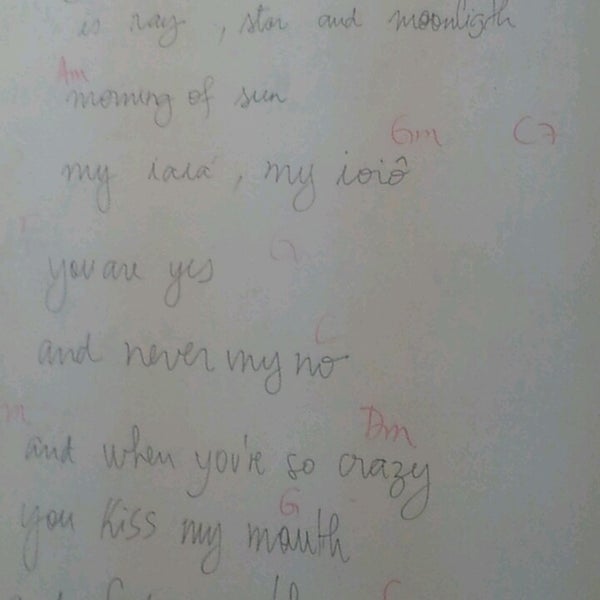 is ray , star and moonligth
Am
morning of sun
Gm C7
my iaiá , my ioiô
you are yes
C
and never my no
m Dm
and when you're so crazy
G
you kiss my mouth